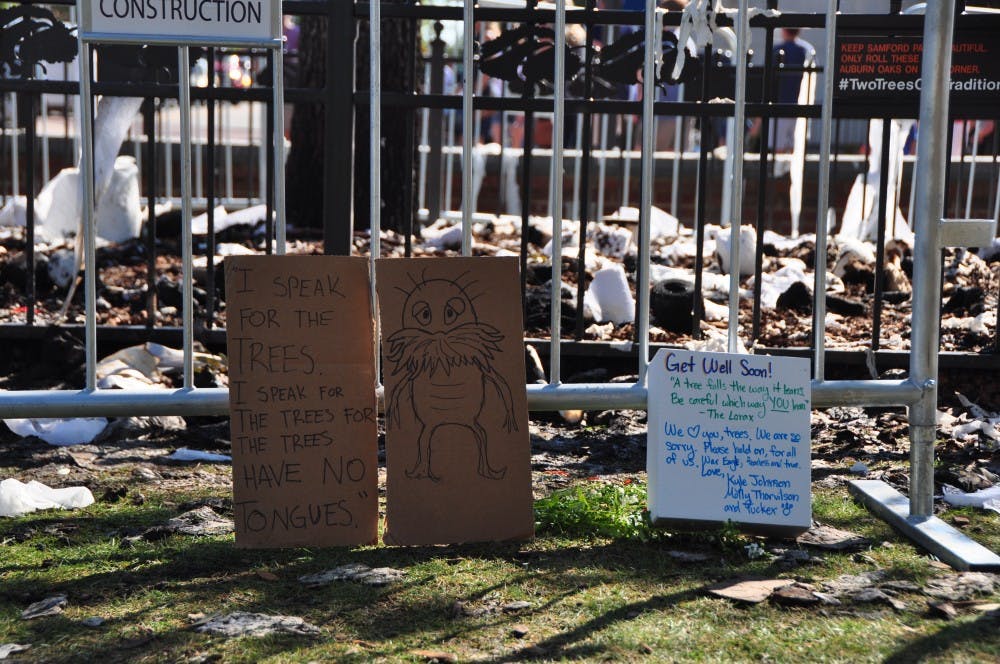 CONSTRUCTION
KEEP SAMFORD PA
AUTIFUL.
ONLY ROLL THESE
AUBURN OAKS ON
ORNER.
#TwoTreesO
Tradition
"I SPEAK
FOR THE
TREES.
I SPEAK FOR
THE TREES FOR
THE TREES
HAVE NO
TONGUES."
Get Well Soon!
"A tree falls the way it leans.
Be careful which way YOU lean"
- The Lorax
We ♡ you, trees. We are so
sorry. Please hold on, for all
of us. War Eagle, fearless and true.
Love,
Kyle Johnson
Molly Thorvilson
and Tucker